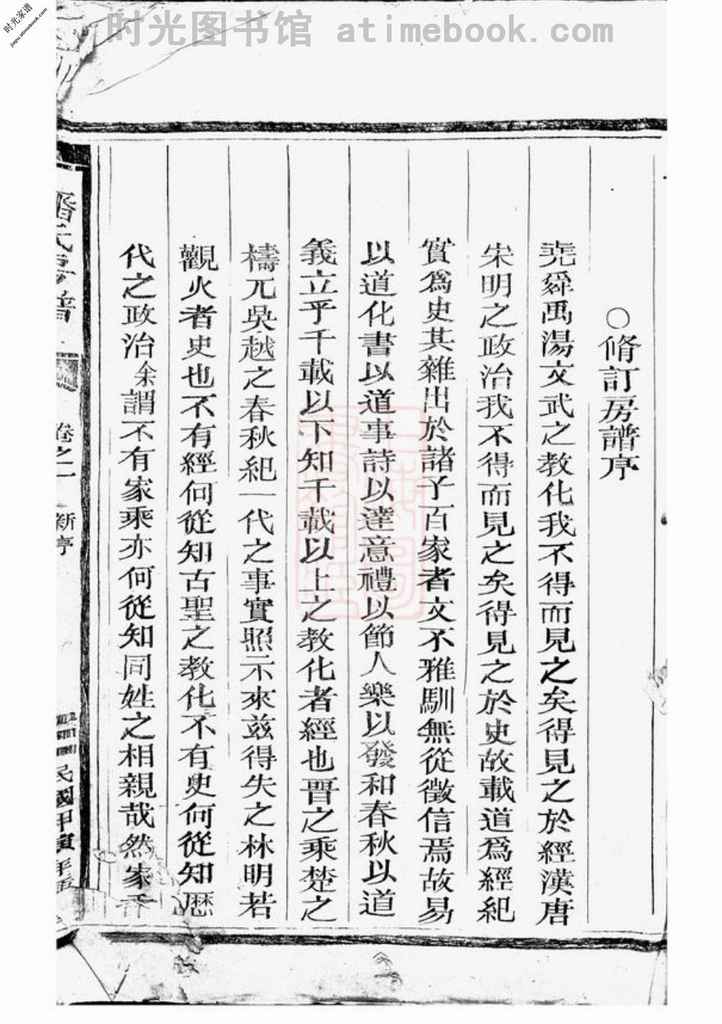 时光图书馆 atimebook.com
时光家谱
jiapu.atimebook.com
○脩訂房譜序
堯舜禹湯文武之教化我不得而見之矣得見之於經漢唐
宋明之政治我不得而見之矣得見之於史故載道爲經紀
實爲史其雜出於諸子百家者文不雅馴無從徵信焉故易
以道化書以道事詩以達意禮以節人樂以發和春秋以道
義立乎千載以下知千載以上之教化者經也晋之乘楚之
檮兀吳越之春秋紀一代之事實照示來兹得失之林明若
觀火者史也不有經何從知古聖之教化不有史何從知歷
代之政治余謂不有家乘亦何從知同姓之相親哉然家
潘氏房譜
卷之一 新序
民國甲寅年